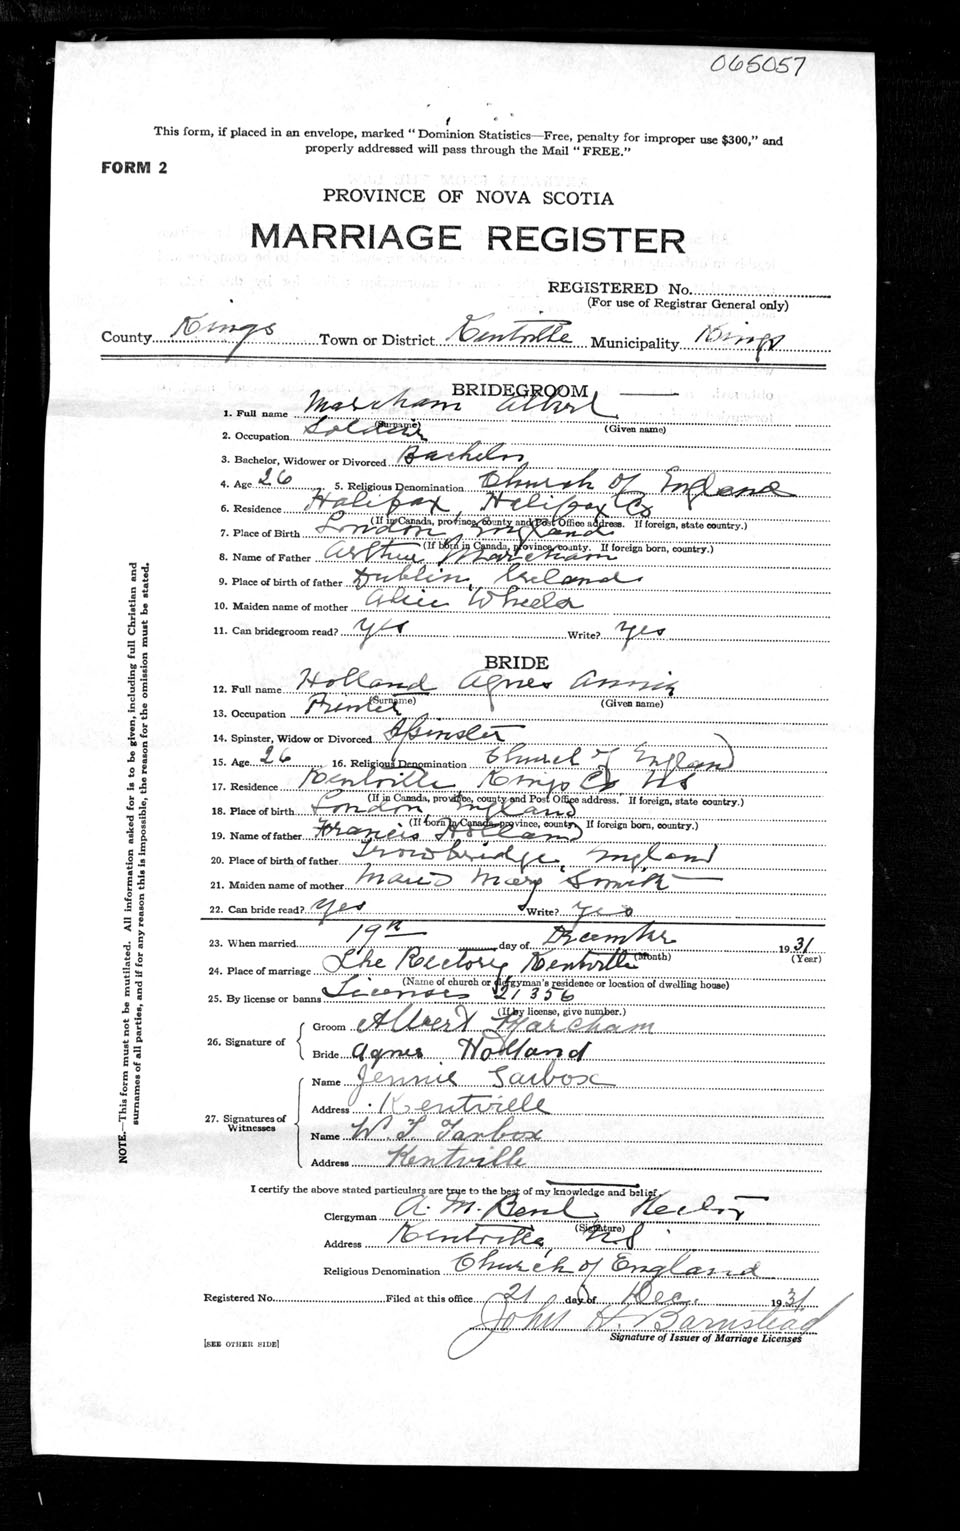 065057
This form, if placed in an envelope, marked "Dominion Statistics—Free, penalty for improper use $300," and
properly addressed will pass through the Mail "FREE."
FORM 2
PROVINCE OF NOVA SCOTIA
MARRIAGE REGISTER
REGISTERED No.
(For use of Registrar General only)
County Kings Town or District Kentville Municipality Kings
BRIDEGROOM
1. Full name Marcham Albert
(Surname) (Given name)
2. Occupation Soldier
3. Bachelor, Widower or Divorced Bachelor
4. Age 26 5. Religious Denomination Church of England
6. Residence Halifax, Halifax Co
(If in Canada, province, county and Post Office address. If foreign, state country.)
7. Place of Birth London England
(If born in Canada, province, county. If foreign born, country.)
8. Name of Father Arthur Marcham
9. Place of birth of father Dublin, Ireland
10. Maiden name of mother Alice Wheeler
11. Can bridegroom read? yes Write? yes
BRIDE
12. Full name Holland Agnes Annie
(Surname) (Given name)
13. Occupation Printer
14. Spinster, Widow or Divorced Spinster
15. Age 26 16. Religious Denomination Church of England
17. Residence Kentville Kings Co NS
(If in Canada, province, county and Post Office address. If foreign, state country.)
18. Place of birth London England
(If born in Canada, province, county. If foreign born, country.)
19. Name of father Francis Holland
20. Place of birth of father Trowbridge, England
21. Maiden name of mother Mary Smith
22. Can bride read? yes Write? yes
23. When married 19th day of December 1931
(Month) (Year)
24. Place of marriage The Rectory Kentville
(Name of church or clergyman's residence or location of dwelling house)
25. By license or banns License 21356
(If by license, give number.)
26. Signature of
Groom Albert Marcham
Bride Agnes Holland
27. Signatures of Witnesses
Name Jennie Tarbox
Address Kentville
Name W. T. Tarbox
Address Kentville
I certify the above stated particulars are true to the best of my knowledge and belief,
Clergyman A. M. Bent, Rector
(Signature)
Address Kentville, NS
Religious Denomination Church of England
Registered No. Filed at this office 21 day of Dec. 1931
John H. Barnstead
Signature of Issuer of Marriage Licenses
[SEE OTHER SIDE]
NOTE.—This form must not be mutilated. All information asked for is to be given, including full Christian and
surnames of all parties, and if for any reason this is impossible, the reason for the omission must be stated.